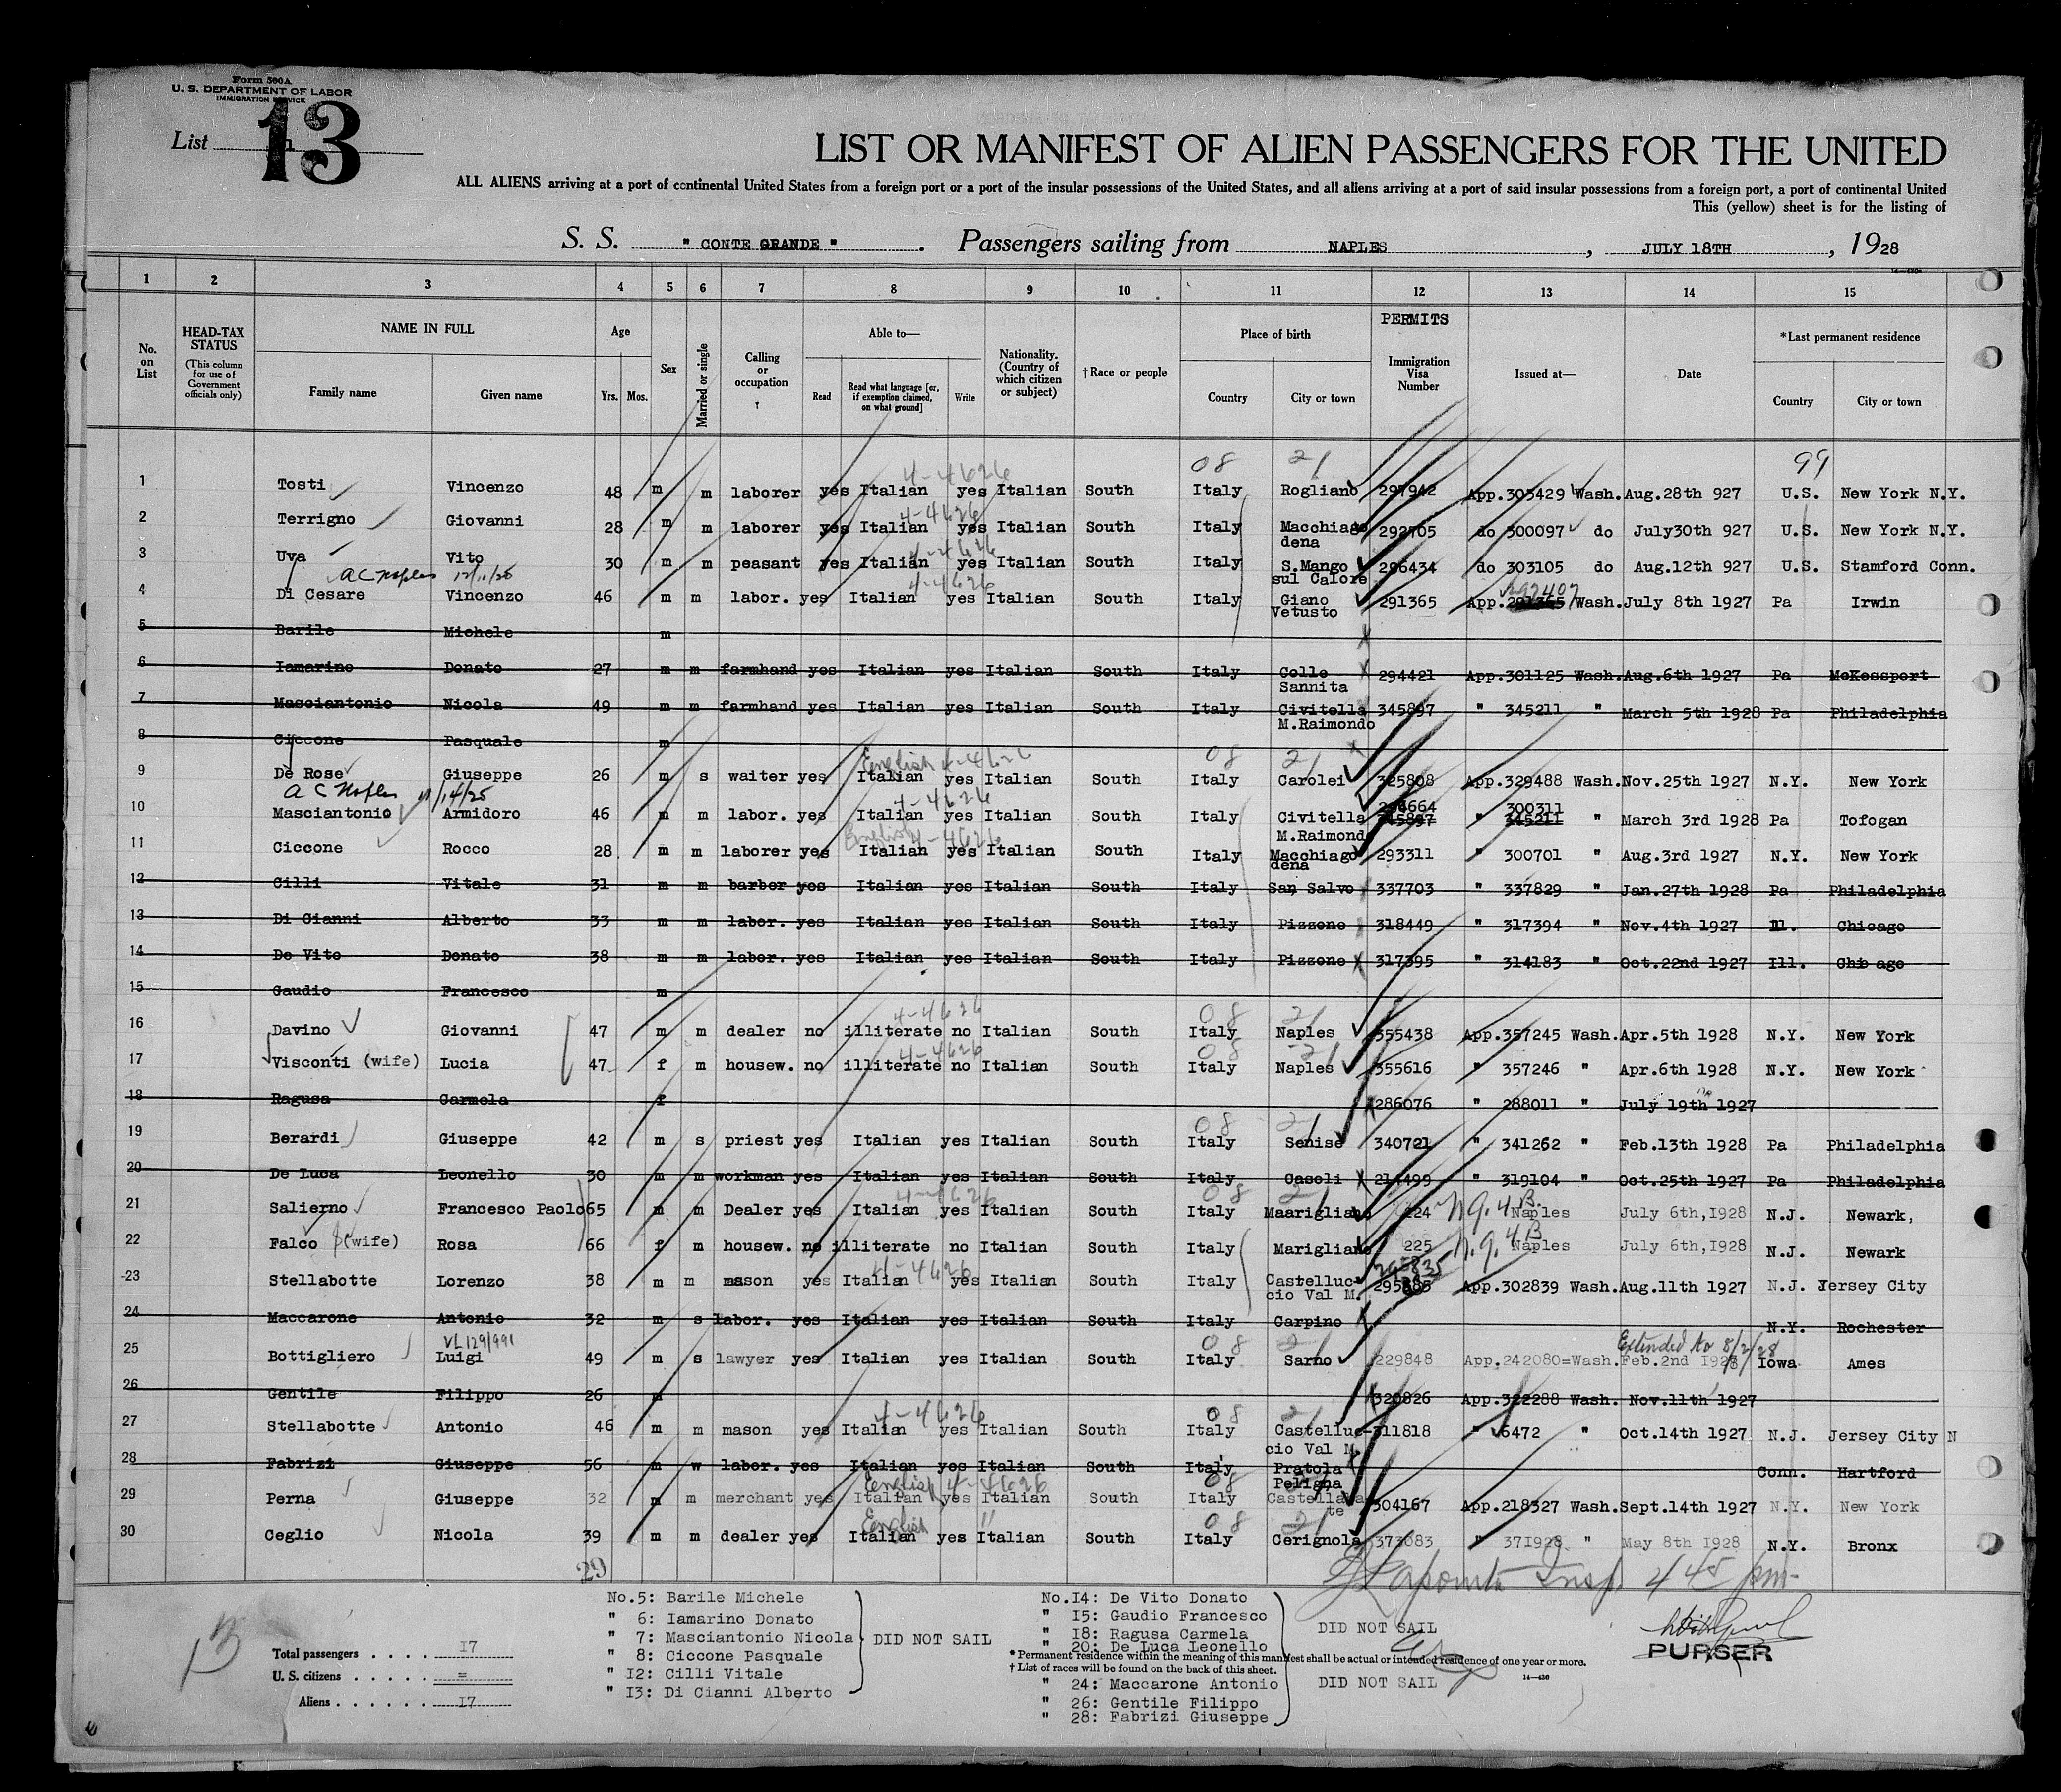 Form 500A
U. S. DEPARTMENT OF LABOR
IMMIGRATION SERVICE
List 13
LIST OR MANIFEST OF ALIEN PASSENGERS FOR THE UNITED
ALL ALIENS arriving at a port of continental United States from a foreign port or a port of the insular possessions of the United States, and all aliens arriving at a port of said insular possessions from a foreign port, a port of continental United
This (yellow) sheet is for the listing of
S. S. " CONTE GRANDE " . Passengers sailing from NAPLES , JULY 18TH , 1928
1 2 3 4 5 6 7 8 9 10 11 12 13 14 15
No. on List
HEAD-TAX STATUS
(This column for use of Government officials only)
NAME IN FULL
Family name Given name
Age
Yrs. Mos.
Sex
Married or single
Calling or occupation
Able to—
Read Read what language [or, if exemption claimed, on what ground] Write
Nationality. (Country of which citizen or subject)
†Race or people
Place of birth
Country City or town
PERMITS
Immigration Visa Number
Issued at—
Date
*Last permanent residence
Country City or town
4-4626 08 21 99
1 Tosti Vincenzo 48 m m laborer yes Italian yes Italian South Italy Rogliano 297942 App.303429 Wash. Aug.28th 927 U.S. New York N.Y.
4-4626
2 Terrigno Giovanni 28 m m laborer yes Italian yes Italian South Italy Macchiago dena 292705 do 300097 do July30th 927 U.S. New York N.Y.
4-4626
3 Uva Vito 30 m m peasant yes Italian yes Italian South Italy S.Mango sul Calore 296434 do 303105 do Aug.12th 927 U.S. Stamford Conn.
AC Naples 12/11/25 4-4626 292407
4 Di Cesare Vincenzo 46 m m labor. yes Italian yes Italian South Italy Giano Vetusto 291365 App.291365 Wash. July 8th 1927 Pa Irwin
5 Barile Michele m
6 Iamarino Donato 27 m m farmhand yes Italian yes Italian South Italy Colle Sannita 294421 App.301125 Wash. Aug.6th 1927 Pa McKessport
7 Masciantonio Nicola 49 m m farmhand yes Italian yes Italian South Italy Civitella M.Raimondo 345897 " 345211 " March 5th 1928 Pa Philadelphia
8 Ciccone Pasquale m
English 4-4626 08 21
9 De Rose Giuseppe 26 m s waiter yes Italian yes Italian South Italy Carolei 325808 App.329488 Wash. Nov.25th 1927 N.Y. New York
AC Naples 11/14/25 4-4626 300311
10 Masciantonio Armidoro 46 m m labor. yes Italian yes Italian South Italy Civitella M.Raimondo 345897 " 345211 " March 3rd 1928 Pa Tofogan
English 4-4626
11 Ciccone Rocco 28 m m laborer yes Italian yes Italian South Italy Macchiago dena 293311 " 300701 " Aug.3rd 1927 N.Y. New York
12 Cilli Vitale 31 m m barber yes Italian yes Italian South Italy San Salvo 337703 " 337829 " Jan.27th 1928 Pa Philadelphia
13 Di Cianni Alberto 33 m m labor. yes Italian yes Italian South Italy Pizzone 318449 " 317394 " Nov.4th 1927 Ill. Chicago
14 De Vito Donato 38 m m labor. yes Italian yes Italian South Italy Pizzone 317395 " 314183 " Oct.22nd 1927 Ill. Chicago
15 Gaudio Francesco m
4-4626 08 21
16 Davino Giovanni 47 m m dealer no illiterate no Italian South Italy Naples 355438 App.357245 Wash. Apr.5th 1928 N.Y. New York
4-4626 08 21
17 Visconti (wife) Lucia 47 f m housew. no illiterate no Italian South Italy Naples 355616 " 357246 " Apr.6th 1928 N.Y. New York
18 Ragusa Carmela f 286076 " 288011 " July 19th 1927
08 21
19 Berardi Giuseppe 42 m s priest yes Italian yes Italian South Italy Senise 340721 " 341262 " Feb.13th 1928 Pa Philadelphia
20 De Luca Leonello 30 m m workman yes Italian yes Italian South Italy Casoli 214499 " 319104 " Oct.25th 1927 Pa Philadelphia
4-4626 08 21 N.Q.4.B.
21 Salierno Francesco Paolo 65 m m Dealer yes Italian yes Italian South Italy Maarigliano 224 Naples July 6th,1928 N.J. Newark,
N.Q.4.B
22 Falco (wife) Rosa 66 f m housew. no illiterate no Italian South Italy Marigliano 225 Naples July 6th,1928 N.J. Newark
4-4626 295835
23 Stellabotte Lorenzo 38 m m mason yes Italian yes Italian South Italy Castelluc- cio Val M. 295385 App.302839 Wash. Aug.11th 1927 N.J. Jersey City
24 Maccarone Antonio 32 m s labor. yes Italian yes Italian South Italy Carpino N.Y. Rochester
VL129/991 08 21 Extended to 8/2/28
25 Bottigliero Luigi 49 m s lawyer yes Italian yes Italian South Italy Sarno 229848 App.242080=Wash. Feb.2nd 1928 Iowa Ames
26 Gentile Filippo 26 m 320826 App.322288 Wash. Nov.11th 1927
4-4626 08 21
27 Stellabotte Antonio 46 m m mason yes Italian yes Italian South Italy Castelluc- cio Val M. 311818 " 6472 " Oct.14th 1927 N.J. Jersey City N
28 Fabrizi Giuseppe 56 m w labor. yes Italian yes Italian South Italy Pratola Peligna Conn. Hartford
English 4-4626 08
29 Perna Giuseppe 32 m m merchant yes Italian yes Italian South Italy Castellaba te 304167 App.218327 Wash. Sept.14th 1927 N.Y. New York
English " 08 21
30 Ceglio Nicola 39 m m dealer yes Italian yes Italian South Italy Cerignola 373083 " 371928 " May 8th 1928 N.Y. Bronx
29
Insp 4 45 pm
13
Total passengers . . . . 17
U. S. citizens . . . . . =
Aliens . . . . . . 17
No.5: Barile Michele
" 6: Iamarino Donato
" 7: Masciantonio Nicola
" 8: Ciccone Pasquale
" 12: Cilli Vitale
" 13: Di Cianni Alberto
DID NOT SAIL
No.14: De Vito Donato
" 15: Gaudio Francesco
" 18: Ragusa Carmela
" 20: De Luca Leonello
DID NOT SAIL
* Permanent residence within the meaning of this manifest shall be actual or intended residence of one year or more.
† List of races will be found on the back of this sheet.
14—430
" 24: Maccarone Antonio
" 26: Gentile Filippo
" 28: Fabrizi Giuseppe
DID NOT SAIL
PURSER